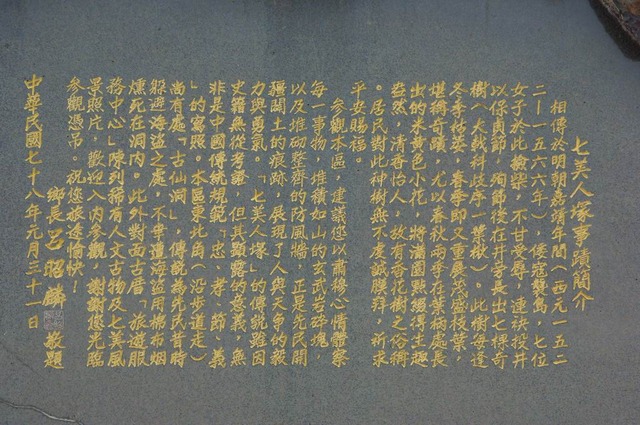 七美人塚事蹟簡介
相傳於明朝嘉靖年間(西元一五二
二－一五六六年)，倭寇襲島，七位
女子於此撿柴，不甘受辱，連袂投井
以保貞節，殉節後在井旁長出七棵奇
樹(大戟科歧序一葉楸)。此樹每逢
冬季枯萎，春季即又重展茂盛枝葉，
堪稱奇蹟，尤以春秋兩季在葉柄處長
出的米黃色小花，將滿園點綴得生趣
盎然，清香怡人，故有香花樹之俗稱
。居民對此神樹無不虔誠膜拜，祈求
平安賜福。
參觀本區，建議您以肅穆心情體察
每一事物，堆積如山的玄武岩碎塊，
以及堆砌整齊的防風牆，正是先民開
疆闢土的痕跡，展現了人與天爭的毅
力與勇氣。「七美人塚」的傳說雖因
史籍無從考證，但其顯露的意義，無
非是中國傳統規範「忠、孝、節、義
」的寫照。本區東北角(沿步道走)
尚有處「古仙洞」，傳說為先民昔時
躲避海盜之處，不幸遭海盜用棉布烟
燻死在洞內。此外對面古厝「旅遊服
務中心」陳列稀有人文古物及七美風
景照片，歡迎入內參觀，謝謝您光臨
參觀憑弔。祝您旅途愉快！
鄉長呂昭麟 敬題
中華民國七十八年元月三十一日